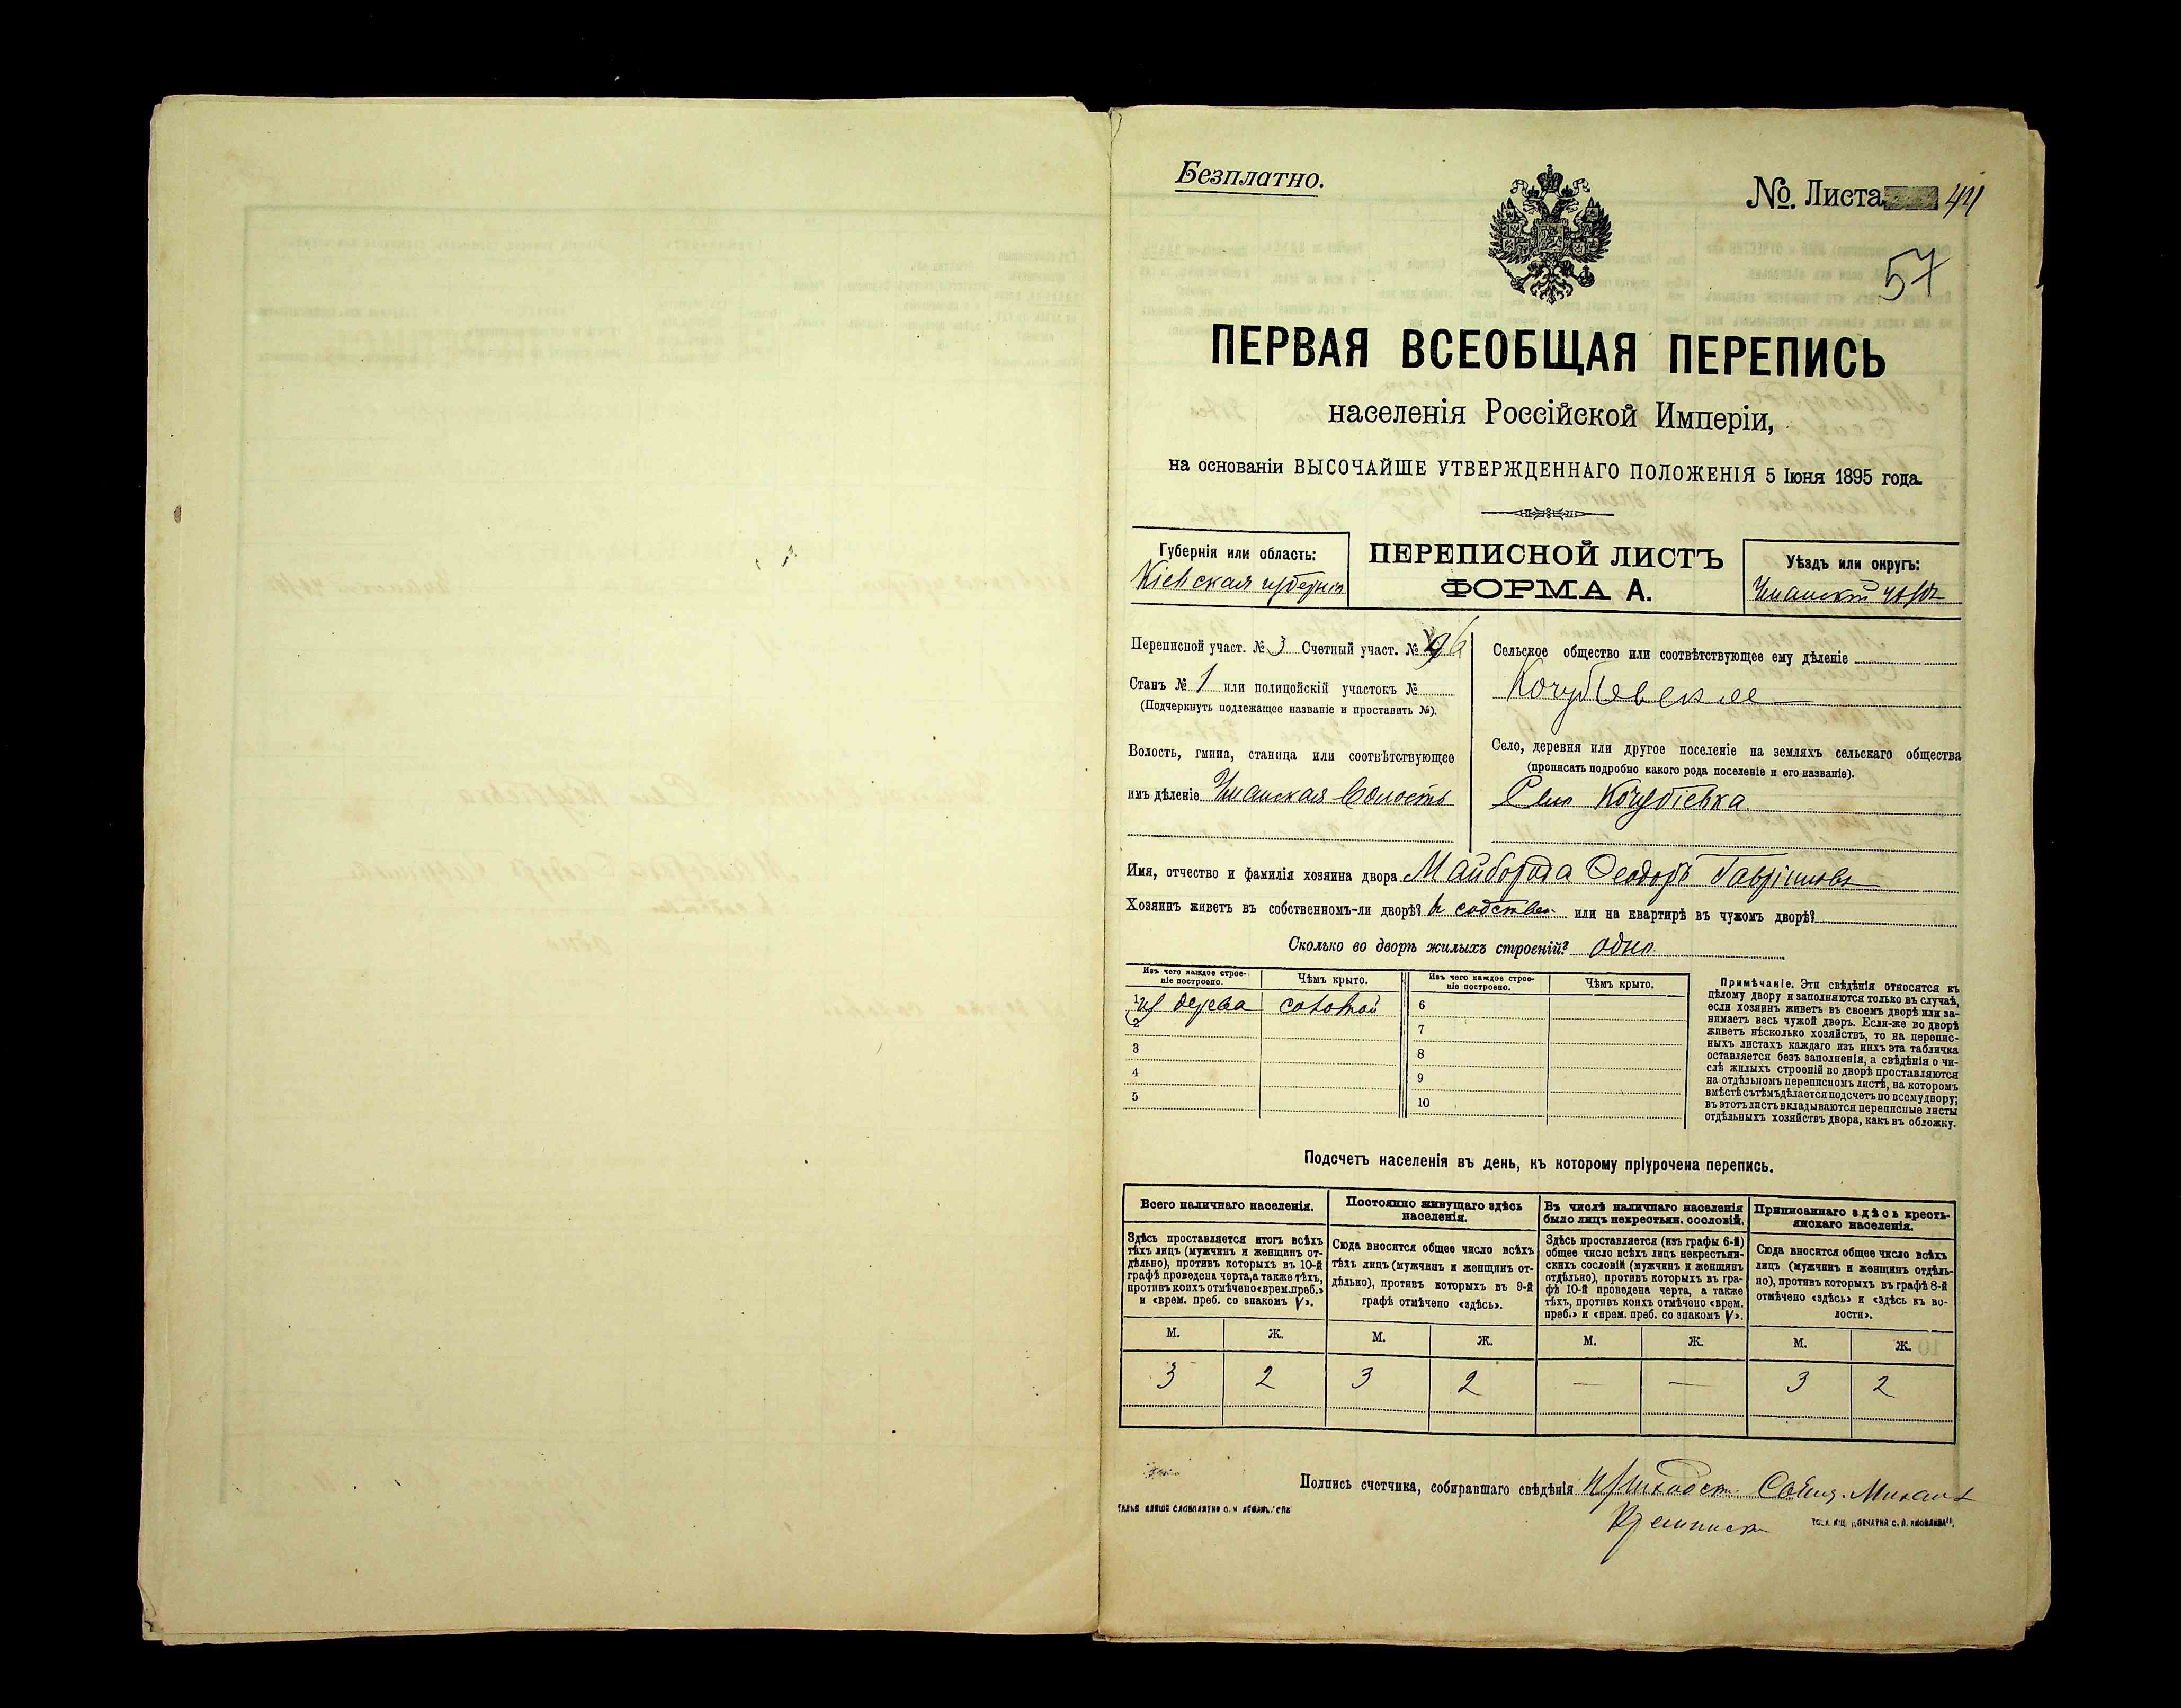 Безплатно.
№. Листа 44
57
ПЕРВАЯ ВСЕОБЩАЯ ПЕРЕПИСЬ
населенія Россійской Имперіи,
на основаніи ВЫСОЧАЙШЕ УТВЕРЖДЕННАГО ПОЛОЖЕНІЯ 5 Іюня 1895 года.
Губернія или область:
Кіевская губернія
ПЕРЕПИСНОЙ ЛИСТЪ
ФОРМА А.
Уѣздъ или округъ:
Уманскій уѣздъ
Переписной участ. № 3 Счетный участ. №
Станъ № 1 или полицейскій участокъ №
(Подчеркнуть подлежащее названіе и проставить №).
Волость, гмина, станица или соотвѣтствующее
имъ дѣленіе Уманская волость
Сельское общество или соотвѣтствующее ему дѣленіе
Кочубіевское
Село, деревня или другое поселеніе на земляхъ сельскаго общества
(прописать подробно какого рода поселеніе и его названіе).
Село Кочубіевка
Имя, отчество и фамилія хозяина двора Майборода Феодоръ Гавріиловъ
Хозяинъ живетъ въ собственномъ-ли дворѣ? въ собствен. или на квартирѣ въ чужомъ дворѣ?
Сколько во дворѣ жилыхъ строеній? одно
Изъ чего каждое строе-
ніе построено.
Чѣмъ крыто.
Изъ чего каждое строе-
ніе построено.
Чѣмъ крыто.
1 изъ дерева соломой 6
2 7
3 8
4 9
5 10
Примѣчаніе. Эти свѣдѣнія относятся къ
цѣлому двору и заполняются только въ случаѣ,
если хозяинъ живетъ въ своемъ дворѣ или за-
нимаетъ весь чужой дворъ. Если-же во дворѣ
живетъ нѣсколько хозяйствъ, то на перепис-
ныхъ листахъ каждаго изъ нихъ эта табличка
оставляется безъ заполненія, а свѣдѣнія о чи-
слѣ жилыхъ строеній во дворѣ проставляются
на отдѣльномъ переписномъ листѣ, на которомъ
вмѣстѣ съ тѣмъ дѣлается подсчетъ по всему двору;
въ этотъ листъ вкладываются переписные листы
отдѣльныхъ хозяйствъ двора, какъ въ обложку.
Подсчетъ населенія въ день, къ которому пріурочена перепись.
Всего наличнаго населенія.
Здѣсь проставляется итогъ всѣхъ
тѣхъ лицъ (мужчинъ и женщинъ от-
дѣльно), противъ которыхъ въ 10-й
графѣ проведена черта, а также тѣхъ,
противъ коихъ отмѣчено «врем. преб.»
и «врем. преб. со знакомъ V».
Постоянно живущаго здѣсь
населенія.
Сюда вносится общее число всѣхъ
тѣхъ лицъ (мужчинъ и женщинъ от-
дѣльно), противъ которыхъ въ 9-й
графѣ отмѣчено «здѣсь».
Въ числѣ наличнаго населенія
было лицъ некрестьян. сословій.
Здѣсь проставляется (изъ графы 6-й)
общее число всѣхъ лицъ некрестьян-
скихъ сословій (мужчинъ и женщинъ
отдѣльно), противъ которыхъ въ гра-
фѣ 10-й проведена черта, а также
тѣхъ, противъ коихъ отмѣчено «врем.
преб.» и «врем. преб. со знакомъ V».
Приписаннаго здѣсь кресть-
янскаго населенія.
Сюда вносится общее число всѣхъ
лицъ (мужчинъ и женщинъ отдѣль-
но), противъ которыхъ въ графѣ 8-й
отмѣчено «здѣсь» и «здѣсь къ во-
лости».
М. Ж. М. Ж. М. Ж. М. Ж.
3 2 3 2 — — 3 2
Подпись счетчика, собиравшаго свѣдѣнія Приходск. Свящ. Михаил